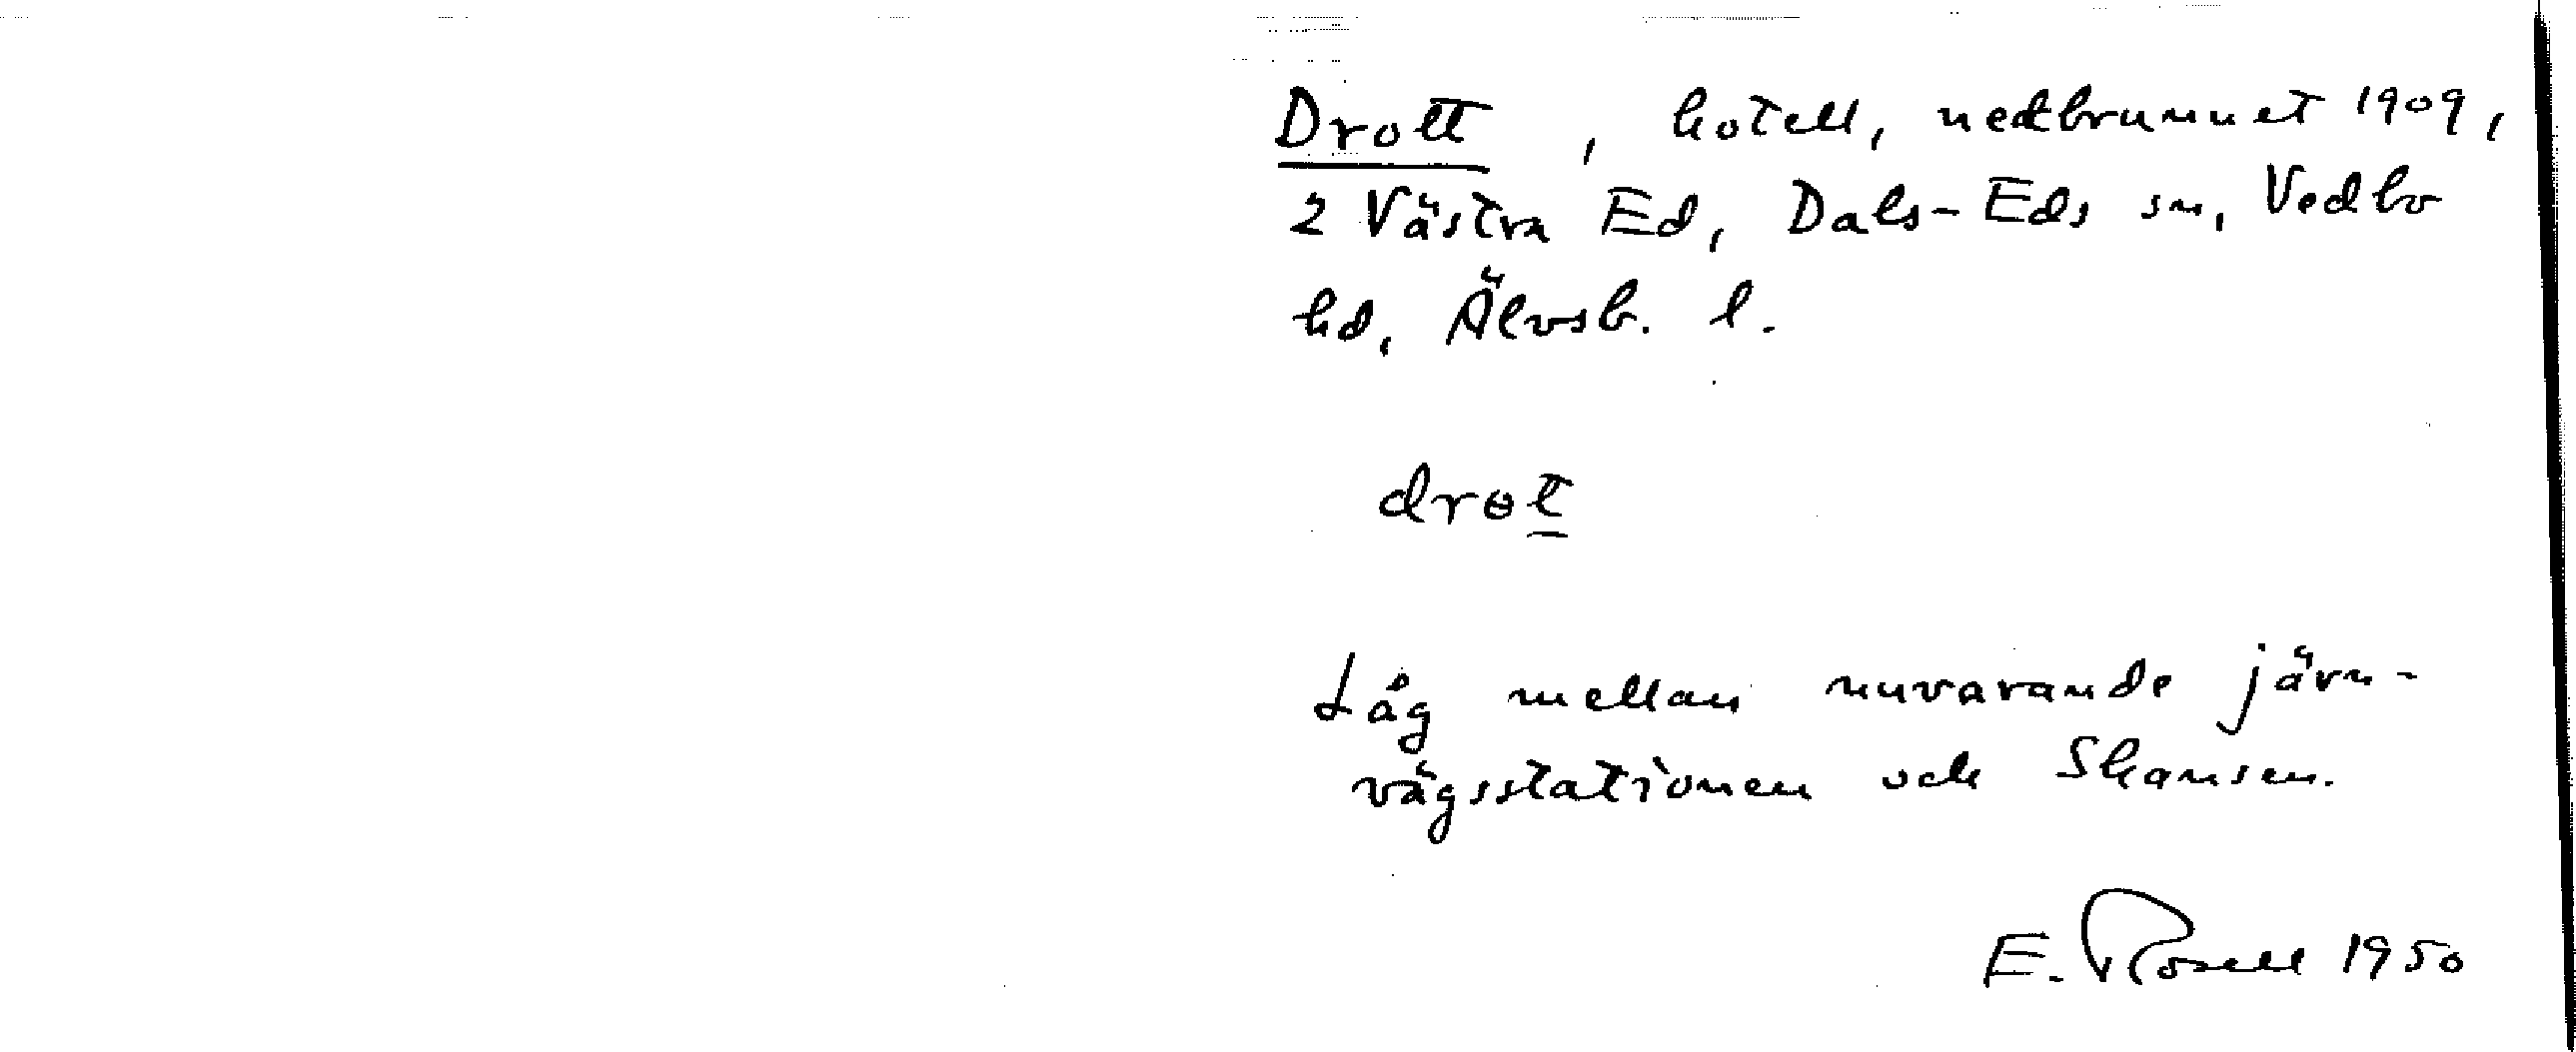 Drott, hotell, nedbrunnet 1909,
2 Västra Ed, Dals-Eds sn, Vedbo
hd, Älvsb. l.
drɵt
Låg mellan nuvarande järn-
vägsstationen och Skansen.
E. Rosell 1950